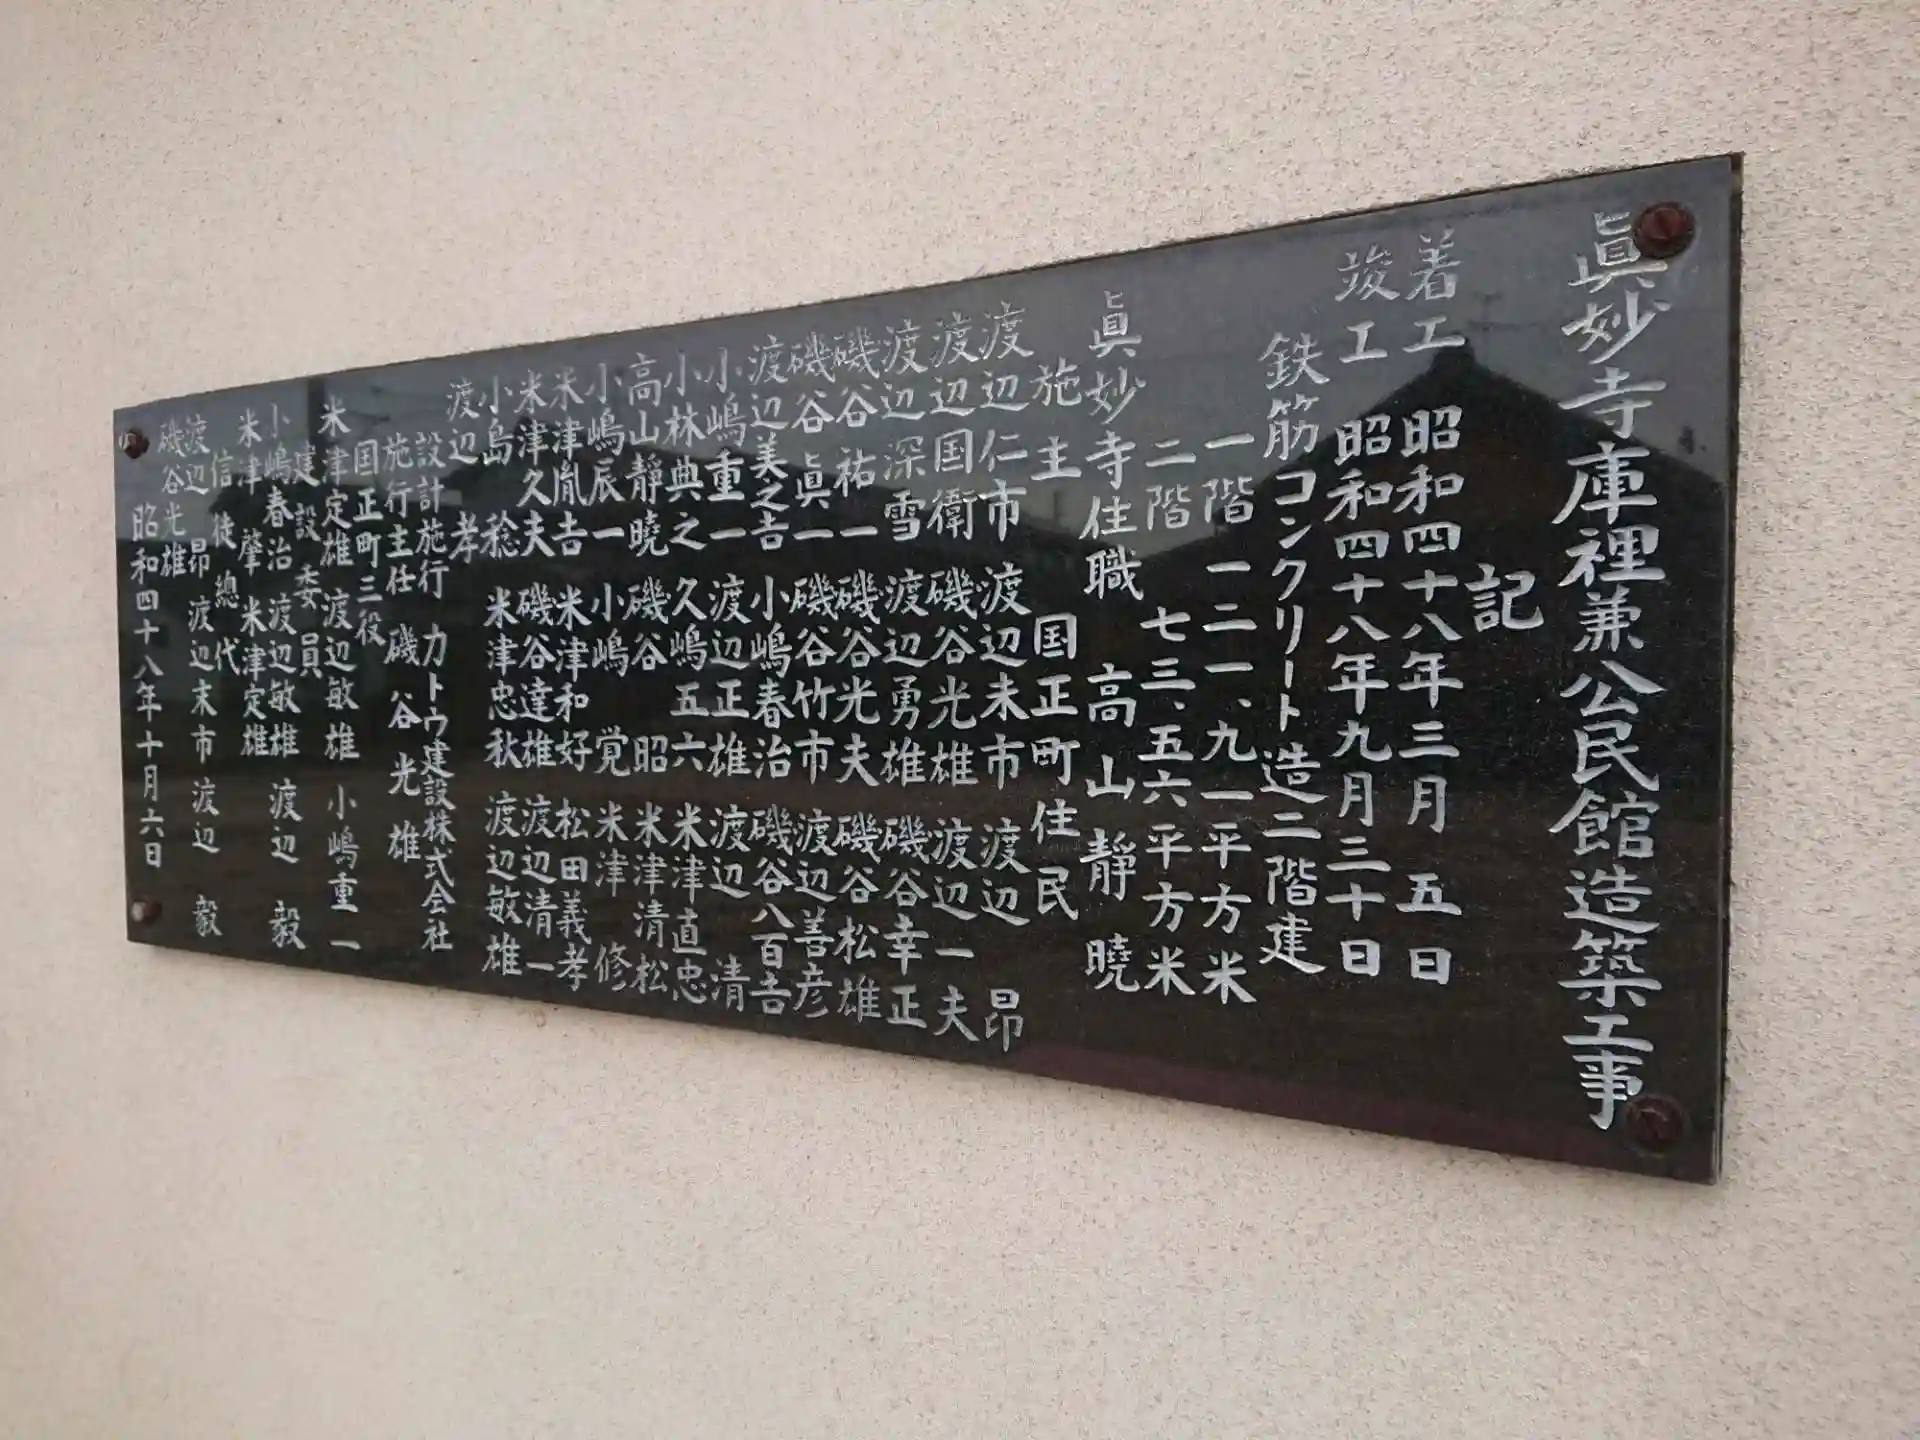 眞妙寺庫裡兼公民館造築工事
記
着工 昭和四十八年三月 五日
竣工 昭和四十八年九月三十日
鉄筋コンクリート造二階建
一階 一二一、九一平方米
二階 七三、五六平方米
眞妙寺住職 高山靜曉
施主 国正町住民
渡辺仁市 渡辺末市 渡辺 昂
渡辺国衛 磯谷光雄 渡辺一夫
渡辺深雪 渡辺勇雄 磯谷幸正
磯谷祐一 磯谷光夫 磯谷松雄
磯谷眞一 磯谷竹市 渡辺善彦
渡辺美之吉 小嶋春治 磯谷八百吉
小嶋重一 渡辺正雄 渡辺 清
小林典之 久嶋五六 米津直忠
高山靜曉 磯谷 昭 米津清松
小嶋辰一 小嶋 覚 米津 修
米津胤吉 米津和好 松田義孝
米津久夫 磯谷達雄 渡辺清一
小島 稔 米津忠秋 渡辺敏雄
渡辺 孝
設計施行 カトウ建設株式会社
施行主任 磯谷光雄
国正町三役
米津定雄 渡辺敏雄 小嶋重一
建設委員
小嶋春治 渡辺敏雄 渡辺 毅
米津 肇 米津定雄
信徒総代
渡辺 昂 渡辺末市 渡辺 毅
磯谷光雄
昭和四十八年十月六日